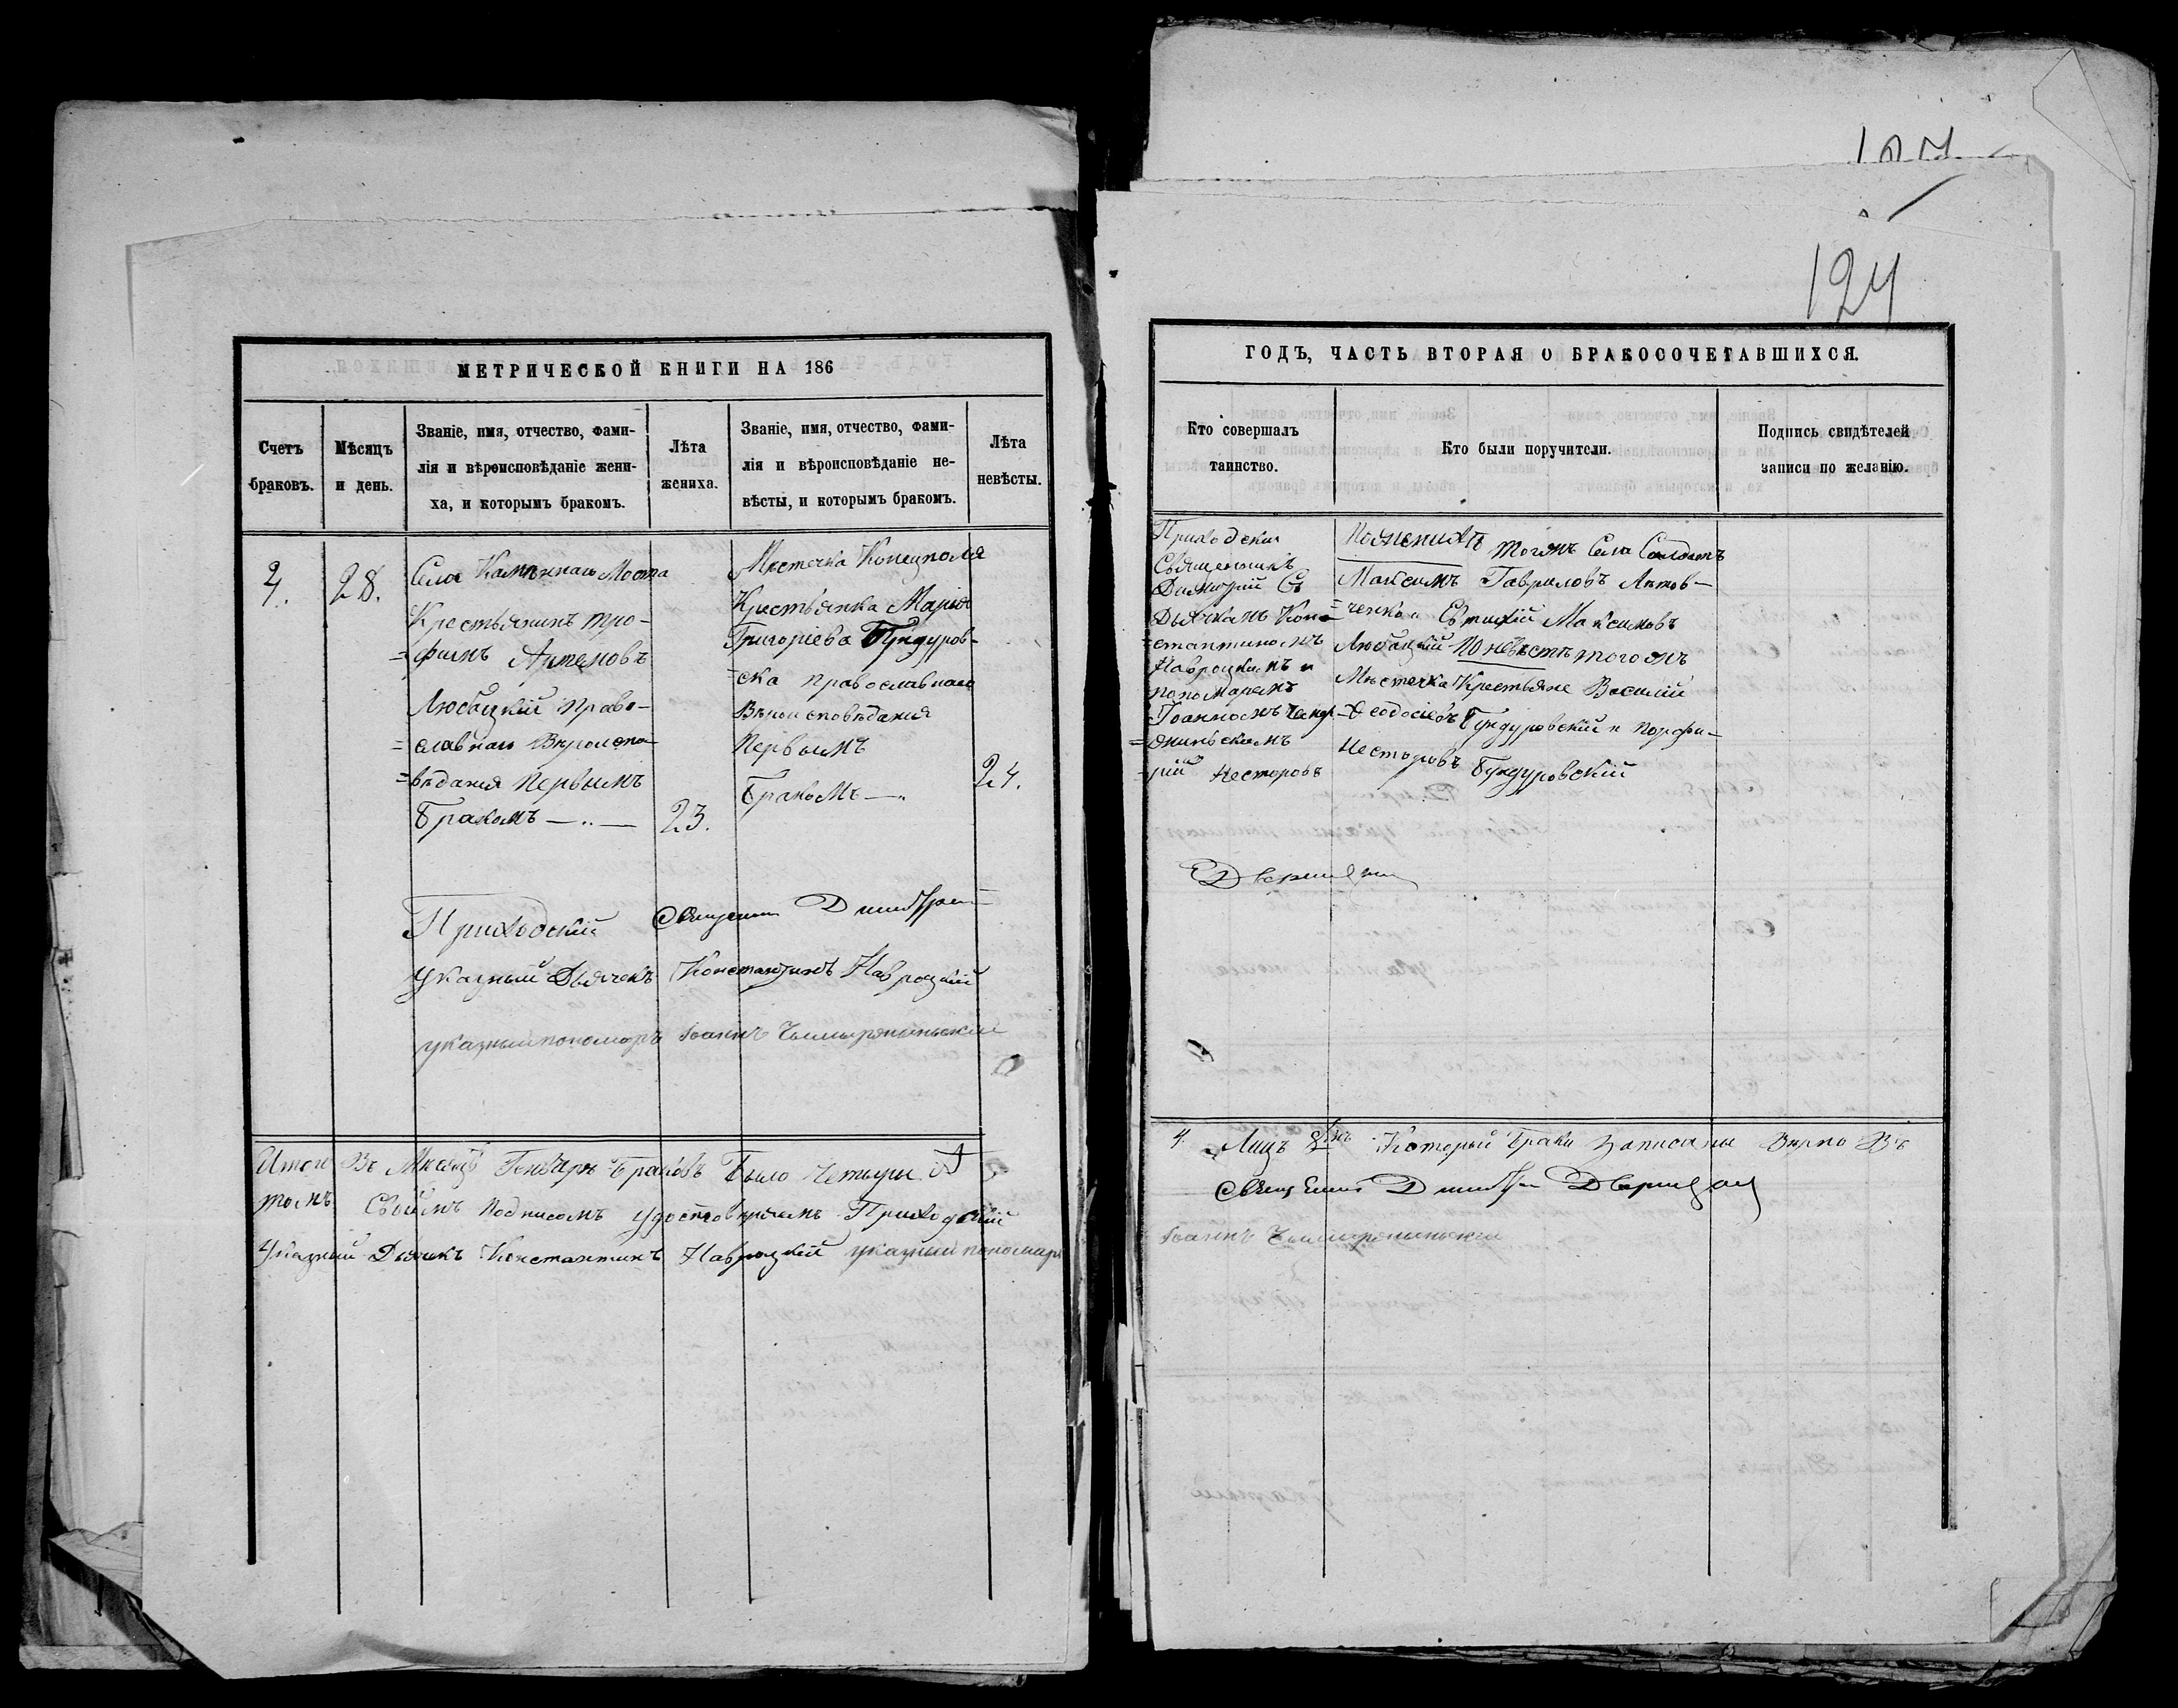 124
МЕТРИЧЕСКОЙ КНИГИ НА 186
Счетъ браковъ.
Мѣсяцъ и день.
Званіе, имя, отчество, фами-
лія и вѣроисповѣданіе жени-
ха, и которымъ бракомъ.
Лѣта жениха.
Званіе, имя, отчество, фами-
лія и вѣроисповѣданіе не-
вѣсты, и которымъ бракомъ.
Лѣта невѣсты.
4.
28.
Села Каменнаго Моста
Крестьянинъ Тро-
=фимъ Артемовъ
Любацкій Право-
=славнаго Вѣроиспо-
=вѣданія Первымъ
Бракомъ
23.
Мѣстечка Конецполя
Крестьянка Марія
Григоріева Бундуров-
=ска православнаго
Вѣроисповѣданія
Первымъ
Бракомъ
24.
Приходскій Священникъ Димитрій
Указный Дьячекъ Константинъ Навроцкій
указный пономарь Іоаннъ
Итого Въ Мѣсяцѣ Генварѣ Браковъ Было Четыре А
томъ Своимъ Подписомъ удостовѣряемъ Приходскій
Указный Дьячекъ Константинъ Навроцкій указный пономарь
ГОДЪ, ЧАСТЬ ВТОРАЯ О БРАКОСОЧЕТАВШИХСЯ.
Кто совершалъ
таинство.
Кто были поручители.
Подпись свидѣтелей
записи по желанію.
Приходскій
Священникъ
Димитрій Съ
Дьячкомъ Кон=
=стантиномъ
Навроцкимъ и
пономаремъ
Іоанномъ
По женихѣ тогожъ Села
Максимъ Гавриловъ Антов-
=ченко и Евтихій Максимовъ
Любацкій По невѣстѣ тогожъ
Мѣстечка Крестьяне Василій
Ѳеодосіевъ Бундуровскій и Порфи-
=рій Несторовъ
Несторовъ Бундуровскій
4. Лицъ 8 Которыи Браки Записаны Вѣрно Въ
Священникъ Димитрій
Іоаннъ